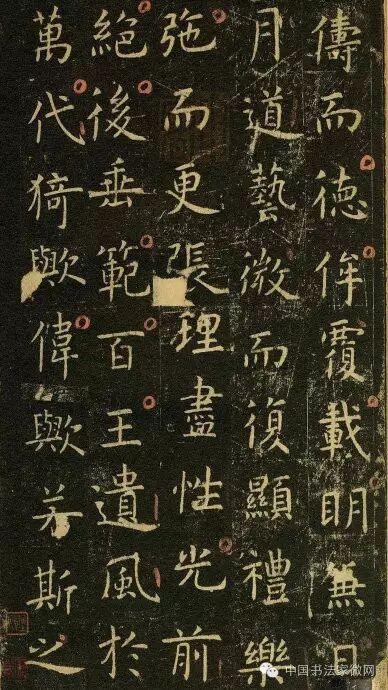 儔而德侔覆載明無日
月道藝微而復顯禮樂
弛而更張理盡性光前
絕後垂範百王遺風於
萬代猗歟偉歟若斯之
中国书法家微网